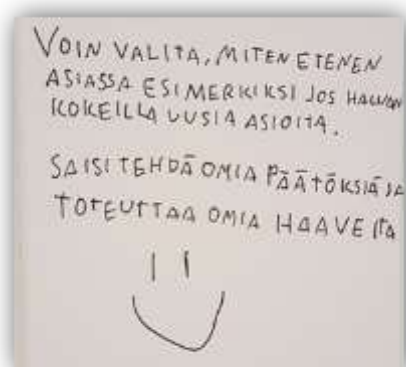 VOIN VALITA, MITEN ETENEN
ASIASSA ESIMERKIKSI JOS HALUAN
KOKEILLA UUSIA ASIOITA.
SAISI TEHDÄ OMIA PÄÄTÖKSIÄ JA
TOTEUTTAA OMIA HAAVEITA